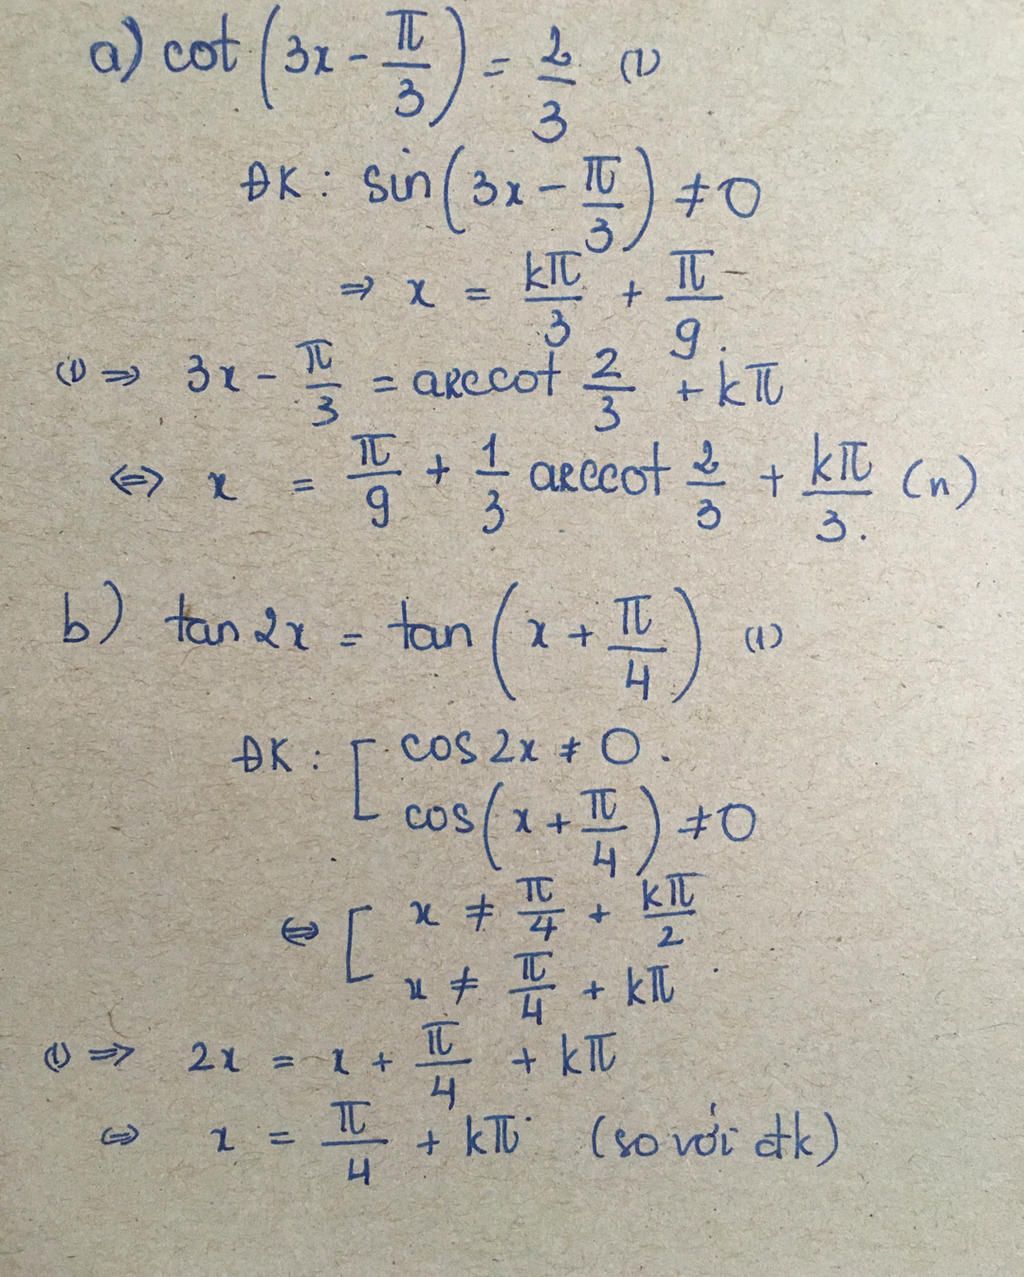 a) cot(3x - π/3) = 2/3 (1)
ĐK : sin(3x - π/3) ≠ 0
⇒ x = kπ/3 + π/9.
(1) ⇒ 3x - π/3 = arccot 2/3 + kπ
⇔ x = π/9 + 1/3 arccot 2/3 + kπ/3. (n)
b) tan 2x = tan(x + π/4) (1)
ĐK : [ cos 2x ≠ 0.
cos(x + π/4) ≠ 0
⇔ [ x ≠ π/4 + kπ/2
x ≠ π/4 + kπ
(1) ⇒ 2x = x + π/4 + kπ
⇔ x = π/4 + kπ (so với đk)